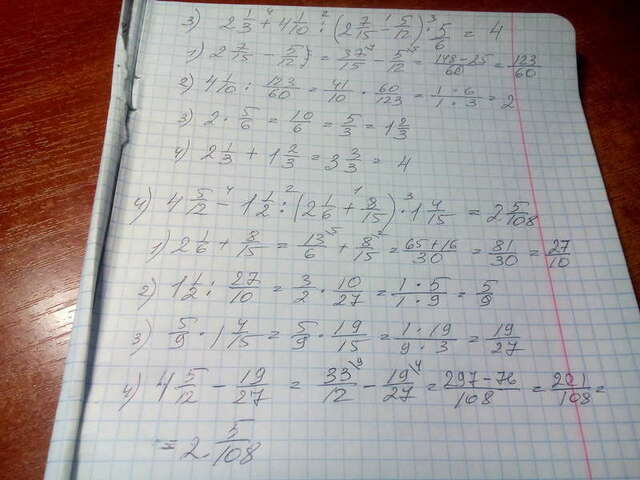 3) 2 1/3 + 4 1/10 : (2 7/15 - 5/12) · 5/6 = 4
1) 2 7/15 - 5/12) = 37/15 - 5/12 = 148-25/60 = 123/60
2) 4 1/10 : 123/60 = 41/10 · 60/123 = 1·6/1·3 = 2
3) 2 · 5/6 = 10/6 = 5/3 = 1 2/3
4) 2 1/3 + 1 2/3 = 3 3/3 = 4
4) 4 5/12 - 1 1/2 : (2 1/6 + 8/15) · 1 4/15 = 2 5/108
1) 2 1/6 + 8/15 = 13/6 + 8/15 = 65+16/30 = 81/30 = 27/10
2) 1 1/2 : 27/10 = 3/2 · 10/27 = 1·5/1·9 = 5/9
3) 5/9 · 1 4/15 = 5/9 · 19/15 = 1·19/9·3 = 19/27
4) 4 5/12 - 19/27 = 33/12 - 19/27 = 297-76/108 = 221/108 =
= 2 5/108